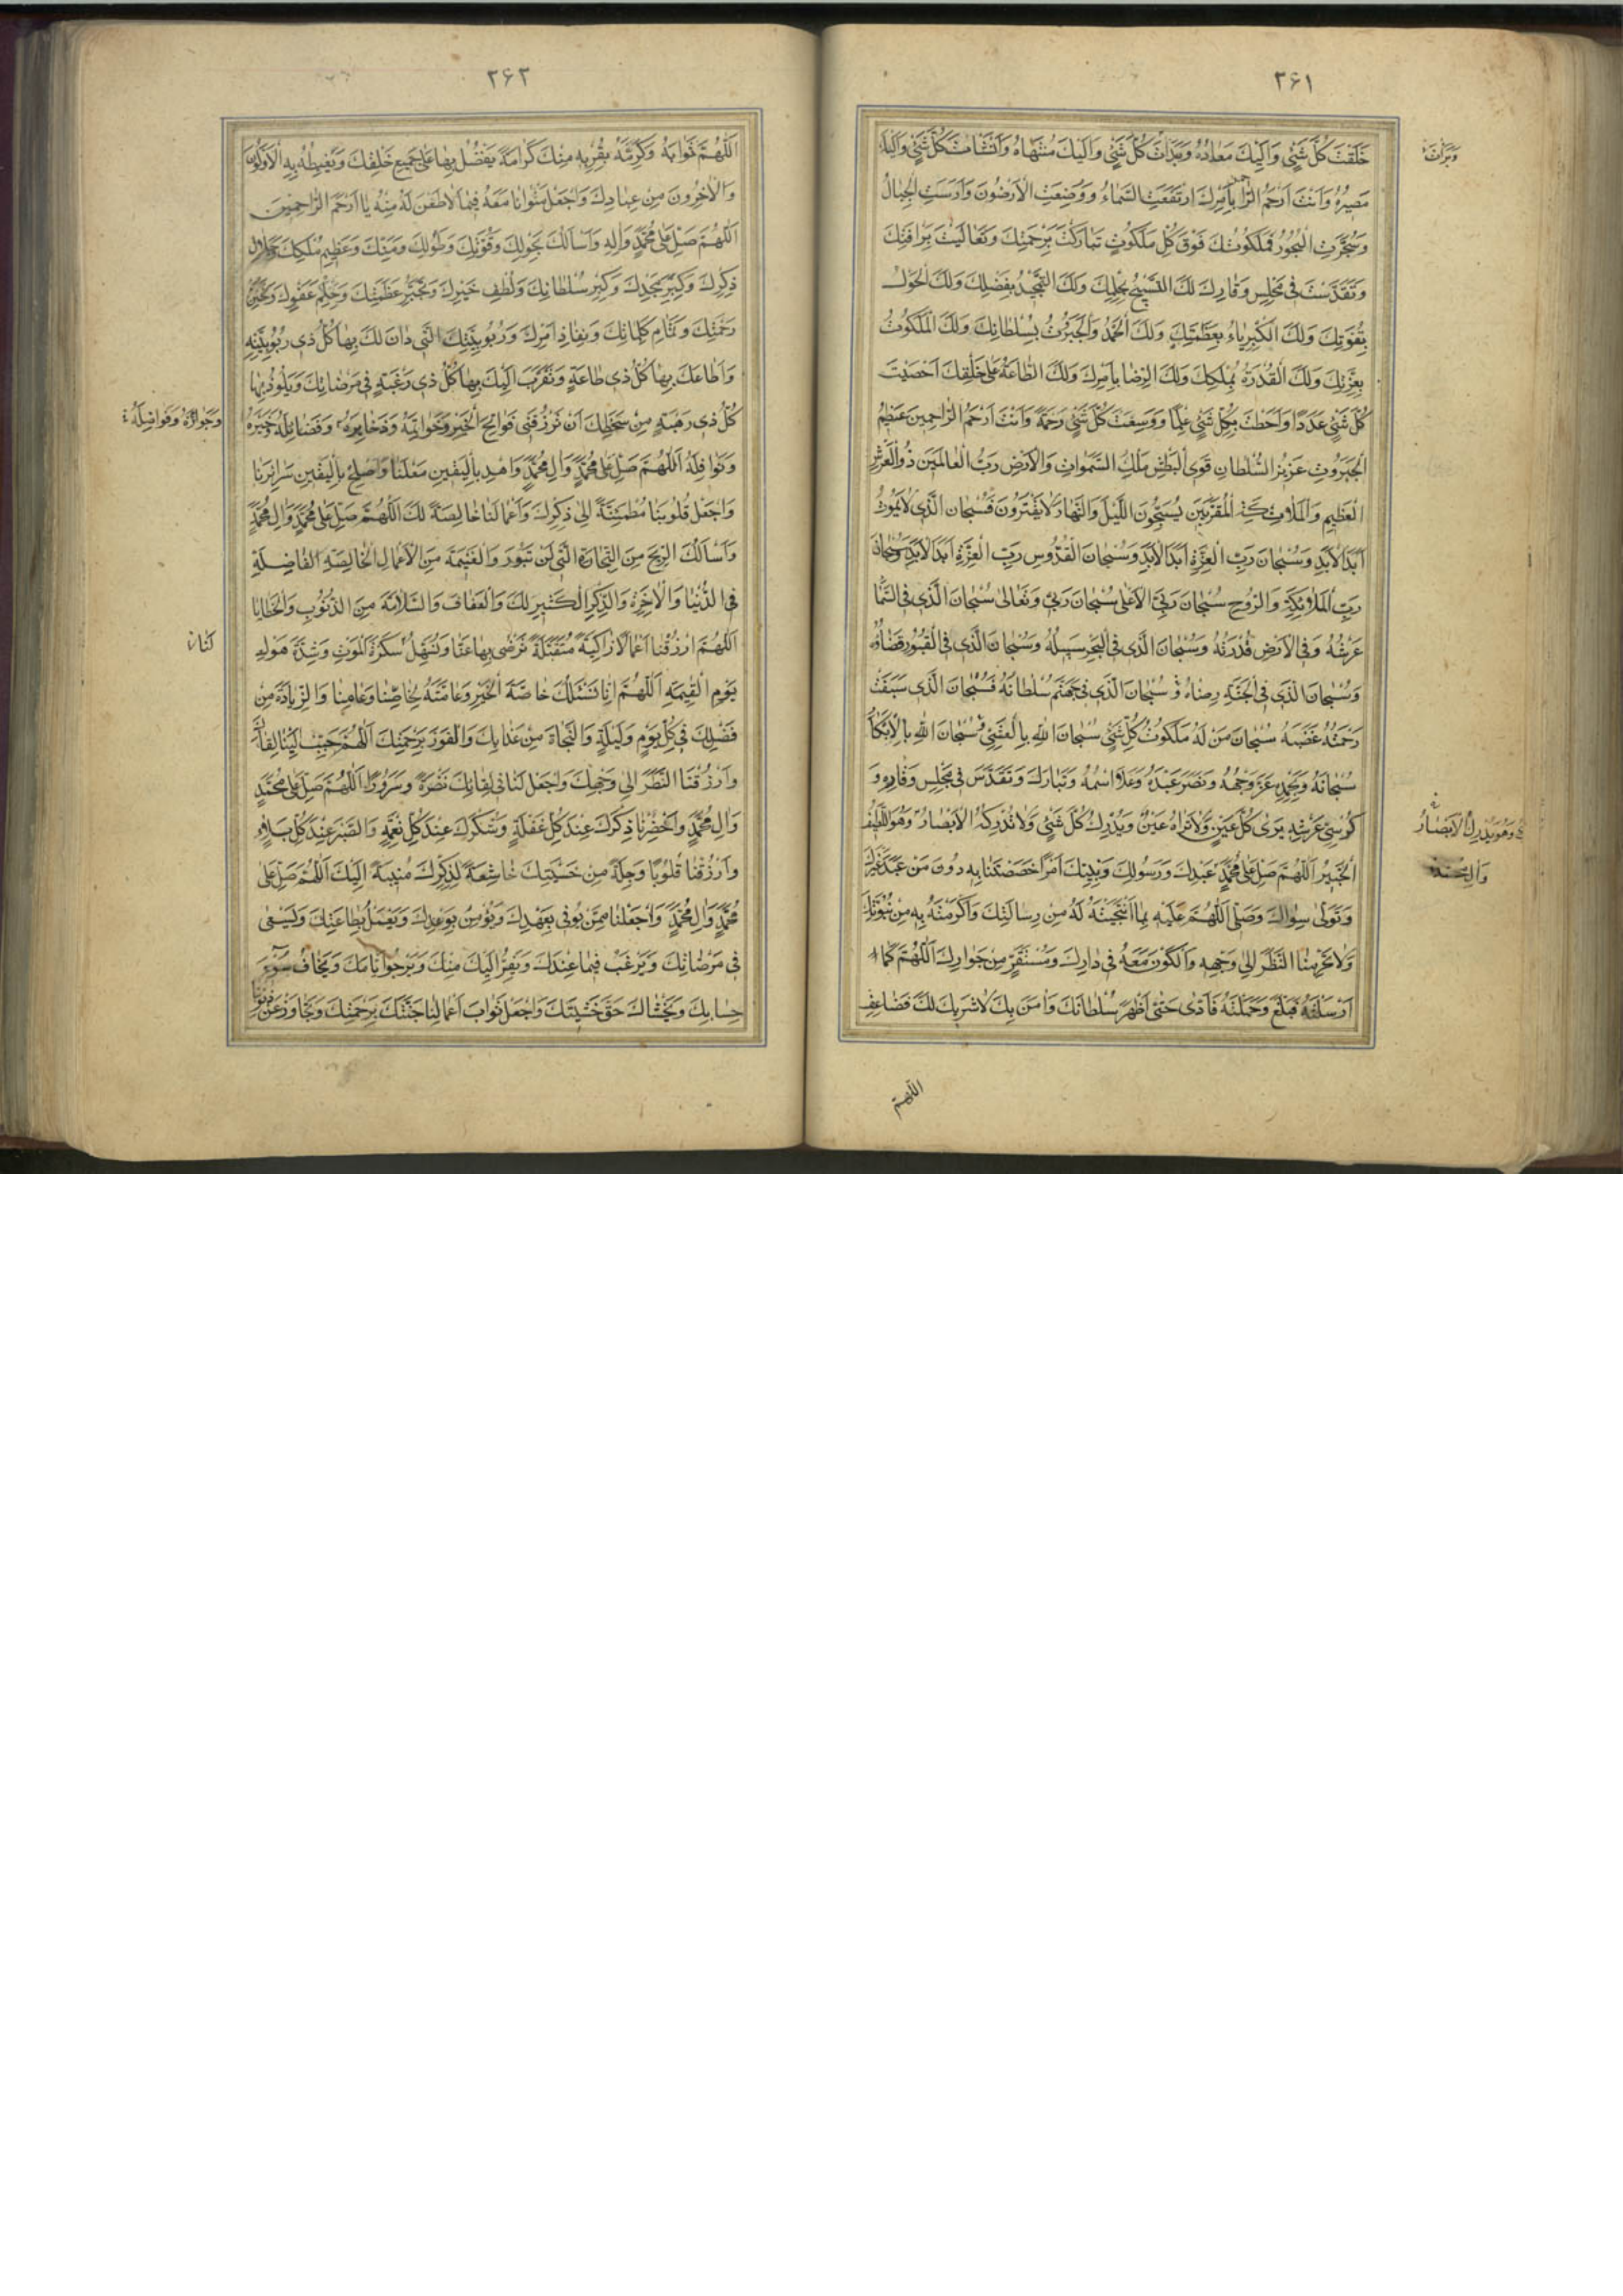 ۳۶۱
خَلَقْتَ كُلَّ شَيْءٍ وَاِلَيْكَ مَعَادُهُ وَبَدَاْتَ كُلَّ شَيْءٍ وَاِلَيْكَ مُنْتَهَاهُ وَاَنْشَأْتَ كُلَّ شَيْءٍ وَاِلَيْكَ
وَبَرَأْتَ
مَصِيرُهُ وَاَنْتَ اَرْحَمُ الرّاحمين بِاَمْرِكَ ارْتَفَعَتِ السَّمَاءُ وَوُضِعَتِ الْاَرَضُونَ وَاُرْسِيَتِ الْجِبَالُ
وَسُجِّرَتِ الْبُحُورُ فَمَلَكُوتُكَ فَوْقَ كُلِّ مَلَكُوتٍ تَبَارَكْتَ بِرَحْمَتِكَ وَتَعَالَيْتَ بِرَأْفَتِكَ
وَتَقَدَّسْتَ فِي مَجْلِسِ وَقَارِكَ لَكَ التَّسْبِيحُ بِحِلْمِكَ وَلَكَ التَّمْجِيدُ بِفَضْلِكَ وَلَكَ الْحَوْلُ
بِقُوَّتِكَ وَلَكَ الْكِبْرِيَاءُ بِعَظَمَتِكَ وَلَكَ الْحَمْدُ وَالْجَبَرُوتُ بِسُلْطَانِكَ وَلَكَ الْمَلَكُوتُ
بِعِزَّتِكَ وَلَكَ الْقُدْرَةُ بِمُلْكِكَ وَلَكَ الرِّضَا بِاَمْرِكَ وَلَكَ الطَّاعَةُ عَلَى خَلْقِكَ اَحْصَيْتَ
كُلَّ شَيْءٍ عَدَدًا وَاَحَطْتَ بِكُلِّ شَيْءٍ عِلْمًا وَوَسِعْتَ كُلَّ شَيْءٍ رَحْمَةً وَاَنْتَ اَرْحَمُ الرَّاحِمِينَ عَظِيمُ
الْجَبَرُوتِ عَزِيزُ السُّلْطَانِ قَوِيُّ الْبَطْشِ مَلِكُ السَّمٰوَاتِ وَالْاَرْضِ رَبُّ الْعَالَمِينَ ذُو الْعَرْشِ
الْعَظِيمِ وَالْمَلَائِكَةِ الْمُقَرَّبِينَ يُسَبِّحُونَ اللَّيْلَ وَالنَّهَارَ لَا يَفْتُرُونَ فَسُبْحَانَ الَّذِي لَا يَمُوتُ
اَبَدَ الْاَبَدِ وَسُبْحَانَ رَبِّ الْعِزَّةِ اَبَدَ الْاَبَدِ وَسُبْحَانَ الْقُدُّوسِ رَبِّ الْعِزَّةِ اَبَدَ الْاَبَدِ وَسُبْحَانَ
رَبِّ الْمَلَائِكَةِ وَالرُّوحِ سُبْحَانَ رَبِّيَ الْاَعْلَى سُبْحَانَ رَبِّي وَتَعَالَى سُبْحَانَ الَّذِي فِي السَّمَاءِ
عَرْشُهُ وَفِي الْاَرْضِ قُدْرَتُهُ وَسُبْحَانَ الَّذِي فِي الْبَحْرِ سَبِيلُهُ وَسُبْحَانَ الَّذِي فِي الْقُبُورِ قَضَاؤُهُ
وَسُبْحَانَ الَّذِي فِي الْجَنَّةِ رِضَاهُ وَسُبْحَانَ الَّذِي فِي جَهَنَّمَ سُلْطَانُهُ فَسُبْحَانَ الَّذِي سَبَقَتْ
رَحْمَتُهُ غَضَبَهُ سُبْحَانَ مَنْ لَهُ مَلَكُوتُ كُلِّ شَيْءٍ سُبْحَانَ اللهِ بِالْعَشِيِّ وَسُبْحَانَ اللهِ بِالْاِبْكَارِ
سُبْحَانَهُ وَبِحَمْدِهِ عَزَّ وَجْهُهُ وَنَصَرَ عَبْدَهُ وَعَلَا اسْمُهُ وَتَبَارَكَ وَتَقَدَّسَ فِي مَجْلِسِ وَقَارِهِ وَ
كُرْسِيِّ عَرْشِهِ يَرَى كُلَّ عَيْنٍ وَلَا تَرَاهُ عَيْنٌ وَيُدْرِكُ كُلَّ شَيْءٍ وَلَا تُدْرِكُهُ الْاَبْصَارُ وَهُوَ اللَّطِيفُ
وَهُوَ يُدْرِكُ الْاَبْصَارَ
الْخَبِيرُ اَللّٰهُمَّ صَلِّ عَلَى مُحَمَّدٍ عَبْدِكَ وَرَسُولِكَ وَنَبِيِّكَ اَمْرًا خَصَصْتَنَا بِهِ دُونَ مَنْ عَبَدَ غَيْرَكَ
وَآلِ مُحَمَّد
وَتَوَلَّى سِوَاكَ وَصَلِّ اللّٰهُمَّ عَلَيْهِ بِمَا انْتَجَبْتَهُ لَهُ مِنْ رِسَالَتِكَ وَاَكْرَمْتَهُ بِهِ مِنْ نُبُوَّتِكَ
وَلَا تَحْرِمْنَا النَّظَرَ اِلَى وَجْهِهِ وَالْكَوْنَ مَعَهُ فِي دَارِكَ وَمُسْتَقَرٍّ مِنْ جِوَارِكَ اَللّٰهُمَّ كَمَا
اَرْسَلْتَهُ فَبَلَّغَ وَحَمَّلْتَهُ فَاَدَّى حَتَّى اَظْهَرَ سُلْطَانَكَ وَآمَنَ بِكَ لَا شَرِيكَ لَكَ فَضَاعِفِ
اللّٰهُمَّ
۳۶۲
اَللّٰهُمَّ ثَوَابَهُ وَكَرِّمْهُ بِقُرْبِهِ مِنْكَ كَرَامَةً يَفْضُلُ بِهَا عَلَى جَمِيعِ خَلْقِكَ وَيَغْبِطُهُ بِهِ الْاَوَّلُونَ
وَالْآخِرُونَ مِنْ عِبَادِكَ وَاجْعَلْ مَثْوَانَا مَعَهُ فِيمَا لَا ظَعْنَ لَهُ مِنْهُ يَا اَرْحَمَ الرَّاحِمِينَ
اَللّٰهُمَّ صَلِّ عَلَى مُحَمَّدٍ وَآلِهِ وَاَسْاَلُكَ بِحَوْلِكَ وَقُوَّتِكَ وَطَوْلِكَ وَمَنِّكَ وَعَظِيمِ مُلْكِكَ وَجَلَالِ
ذِكْرِكَ وَكِبَرِ مَجْدِكَ وَكِبَرِ سُلْطَانِكَ وَلُطْفِ خَيْرِكَ وَتَجَبُّرِ عَظَمَتِكَ وَحِلْمِ عَفْوِكَ وَتَحَنُّنِ
رَحْمَتِكَ وَتَمَامِ كَلِمَاتِكَ وَنَفَاذِ اَمْرِكَ وَرُبُوبِيَّتِكَ الَّتِي دَانَ لَكَ بِهَا كُلُّ ذِي رُبُوبِيَّةٍ
وَاَطَاعَكَ بِهَا كُلُّ ذِي طَاعَةٍ وَتَقَرَّبَ اِلَيْكَ بِهَا كُلُّ ذِي رَغْبَةٍ فِي مَرْضَاتِكَ وَيَلُوذُ بِهَا
كُلُّ ذِي رَهْبَةٍ مِنْ سَخَطِكَ اَنْ تَرْزُقَنِي فَوَاتِحَ الْخَيْرِ وَخَوَاتِمَهُ وَذَخَائِرَهُ وَفَضَائِلَهُ وَخَيْرَهُ
وَجَوَائِزَهُ وَفَوَاضِلَهُ
وَنَوَافِلَهُ اَللّٰهُمَّ صَلِّ عَلَى مُحَمَّدٍ وَآلِ مُحَمَّدٍ وَاهْدِ بِالْيَقِينِ مُعْلَنَنَا وَاَصْلِحْ بِالْيَقِينِ سَرَائِرَنَا
وَاجْعَلْ قُلُوبَنَا مُطْمَئِنَّةً اِلَى ذِكْرِكَ وَاَعْمَالَنَا خَالِصَةً لَكَ اَللّٰهُمَّ صَلِّ عَلَى مُحَمَّدٍ وَآلِ مُحَمَّدٍ
وَاَسْاَلُكَ الرِّبْحَ مِنَ التِّجَارَةِ الَّتِي لَنْ تَبُورَ وَالْغَنِيمَةَ مِنَ الْاَعْمَالِ الْخَالِصَةِ الْفَاضِلَةِ
فِي الدُّنْيَا وَالْآخِرَةِ وَالذِّكْرِ الْكَثِيرِ لَكَ وَالْعَفَافَ وَالسَّلَامَةَ مِنَ الذُّنُوبِ وَالْخَطَايَا
اَللّٰهُمَّ ارْزُقْنَا اَعْمَالًا زَاكِيَةً مُتَقَبَّلَةً تَرْضَى بِهَا عَنَّا وَتُسَهِّلُ سَكْرَةَ الْمَوْتِ وَشِدَّةَ هَوْلِ
لَنَا
يَوْمِ الْقِيٰمَةِ اَللّٰهُمَّ اِنَّا نَسْئَلُكَ خَاصَّةَ الْخَيْرِ وَعَامَّتَهُ لِخَاصِّنَا وَعَامِّنَا وَالزِّيَادَةَ مِنْ
فَضْلِكَ فِي كُلِّ يَوْمٍ وَلَيْلَةٍ وَالنَّجَاةَ مِنْ عَذَابِكَ وَالْفَوْزَ بِرَحْمَتِكَ اَللّٰهُمَّ حَبِّبْ اِلَيْنَا لِقَاءَكَ
وَارْزُقْنَا النَّظَرَ اِلَى وَجْهِكَ وَاجْعَلْ لَنَا فِي لِقَائِكَ نَضْرَةً وَسُرُورًا اَللّٰهُمَّ صَلِّ عَلَى مُحَمَّدٍ
وَآلِ مُحَمَّدٍ وَاَحْضِرْنَا ذِكْرَكَ عِنْدَ كُلِّ غَفْلَةٍ وَشُكْرَكَ عِنْدَ كُلِّ نِعْمَةٍ وَالصَّبْرَ عِنْدَ كُلِّ بَلَاءٍ
وَارْزُقْنَا قُلُوبًا وَجِلَةً مِنْ خَشْيَتِكَ خَاشِعَةً لِذِكْرِكَ مُنِيبَةً اِلَيْكَ اَللّٰهُمَّ صَلِّ عَلَى
مُحَمَّدٍ وَآلِ مُحَمَّدٍ وَاجْعَلْنَا مِمَّنْ يُوفِي بِعَهْدِكَ وَيُؤْمِنُ بِوَعْدِكَ وَيَعْمَلُ بِطَاعَتِكَ وَيَسْعَى
فِي مَرْضَاتِكَ وَيَرْغَبُ فِيمَا عِنْدَكَ وَيَفِرُّ اِلَيْكَ مِنْكَ وَيَرْجُو اَيَّامَكَ وَيَخَافُ سُوءَ
حِسَابِكَ وَيَخْشَاكَ حَقَّ خَشْيَتِكَ وَاجْعَلْ ثَوَابَ اَعْمَالِنَا جَنَّتَكَ بِرَحْمَتِكَ وَتَجَاوَزْ عَنْ ذُنُوبِنَا